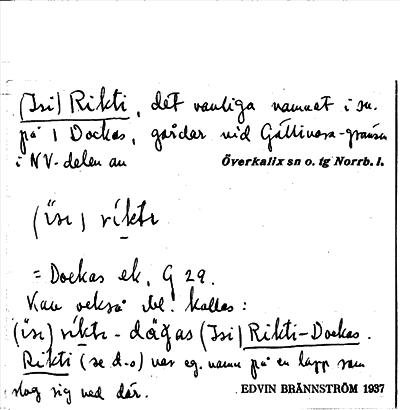 (Isi) Rikti, det vanliga namnet i sn.
på 1 Dockas, gårdar vid Gällivara-gränsen
i NV-delen av Överkalix sn o. tg Norrb. l.
(ísı) ríktı
= Dockas ek, G 29.
Kan också bl. kallas:
(ísı) ríktı-dåkas (Isi) Rikti-Dockas.
Rikti (se d-o) var eg. namn på en lapp som
slog sig ned där. EDVIN BRÄNNSTRÖM 1937